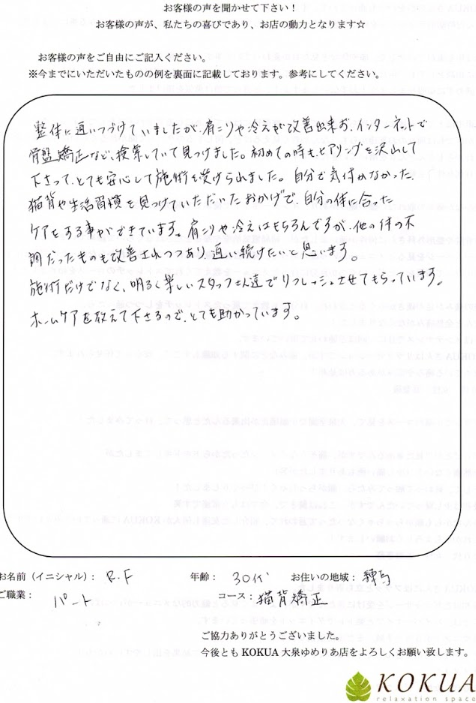 お客様の声を聞かせて下さい！
お客様の声が、私たちの喜びであり、お店の動力となります☆
お客様の声をご自由にご記入ください。
※今までにいただいたものの例を裏面に記載しております。参考にしてください。
整体に通いつづけていましたが、肩こりや冷えが改善出来ず、インターネットで
骨盤矯正など、検索していて見つけました。初めての時もヒアリングを沢山して
下さって、とても安心して施術を受けられました。自分で気付めなかった、
猫背や生活習慣を見つけていただいたおかげで、自分の体に合った
ケアをする事ができています。肩こりや冷えはもちろんですが、他の体の不
調だったものも改善されつつあり通い続けたいと思います。
施術だけでなく、明るく楽しいスタッフさん達でリフレッシュさせてもらっています。
ホームケアを教えて下さるので、とても助かっています。
お名前（イニシャル）： R.F 年齢： 30代 お住いの地域： 練馬
ご職業： パート コース： 猫背矯正
ご協力ありがとうございました。
今後とも KOKUA 大泉ゆめりあ店をよろしくお願い致します。
KOKUA
relaxation space